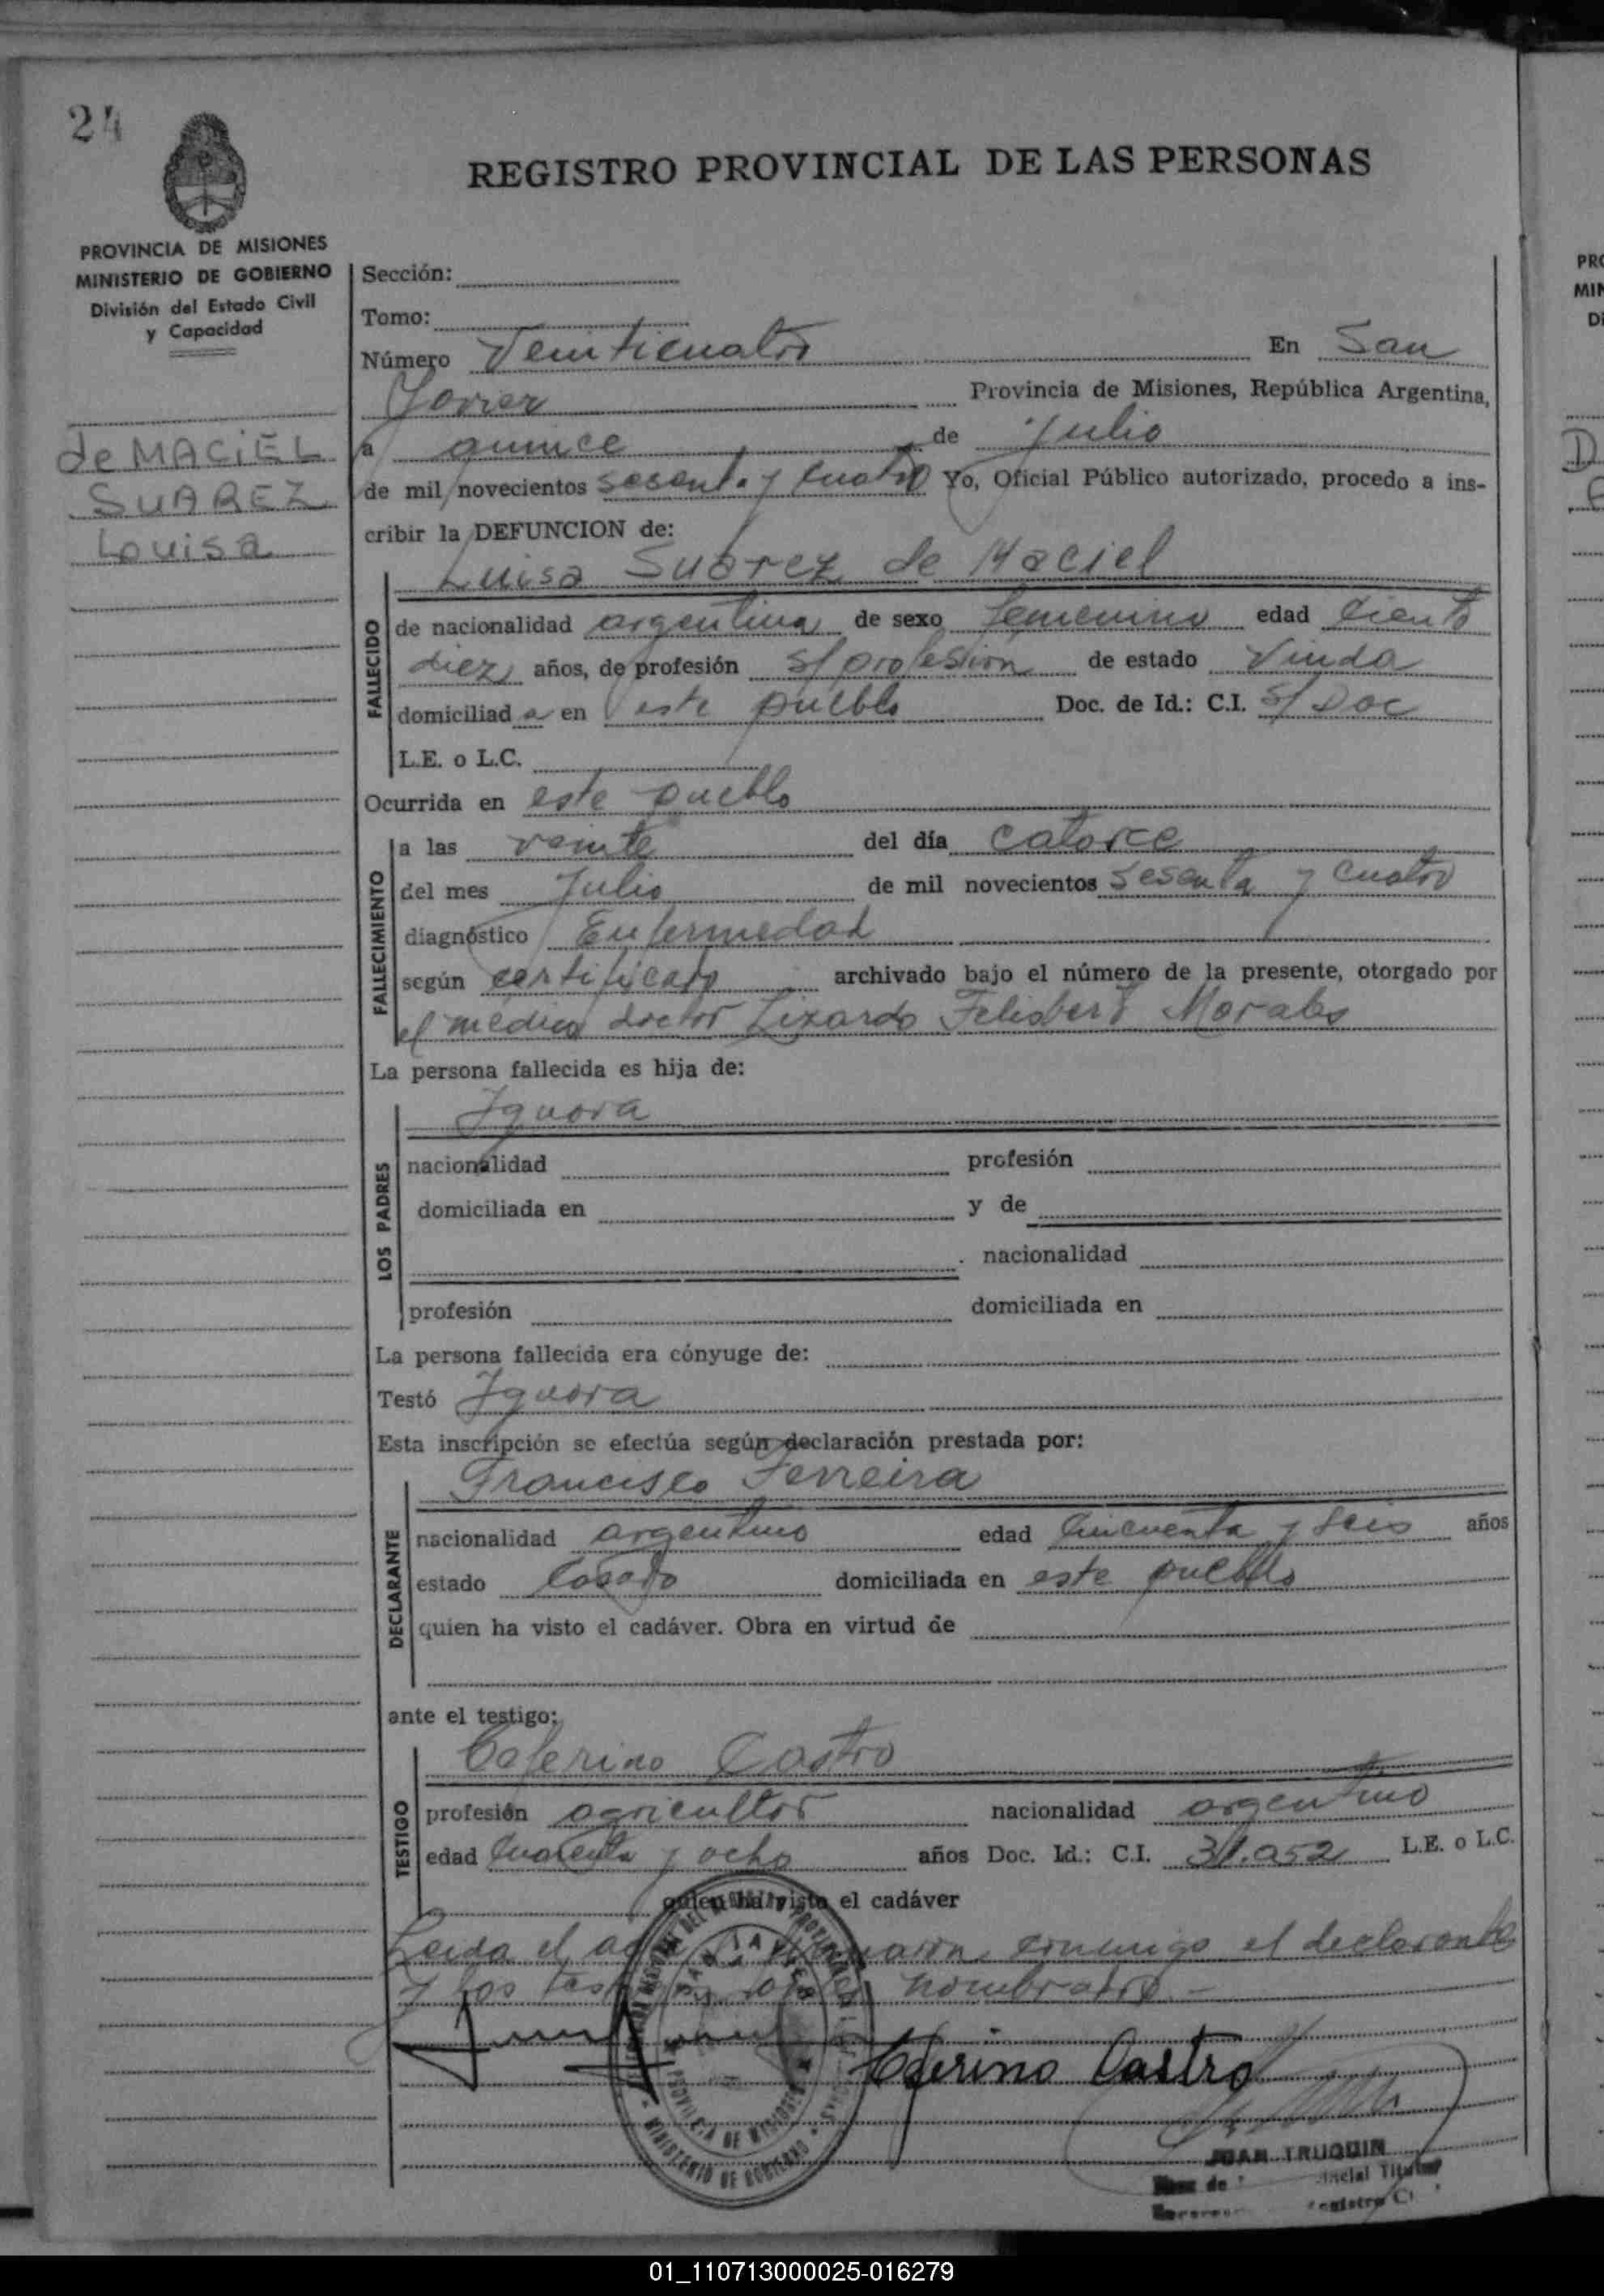 24
REGISTRO PROVINCIAL DE LAS PERSONAS
PROVINCIA DE MISIONES
MINISTERIO DE GOBIERNO
División del Estado Civil
y Capacidad
de MACIEL
SUAREZ
Louisa
Sección:
Tomo:
Número Veinticuatro En San
Javier Provincia de Misiones, República Argentina,
a quince de Julio
de mil novecientos sesenta y cuatro Yo, Oficial Público autorizado, procedo a ins-
cribir la DEFUNCION de:
Luisa Suarez de Maciel
FALLECIDO
de nacionalidad argentina de sexo femenino edad Ciento
diez años, de profesión s/profesión de estado Viuda
domiciliad a en este pueblo Doc. de Id.: C.I. s/Doc
L.E. o L.C.
Ocurrida en este pueblo
FALLECIMIENTO
a las veinte del día catorce
del mes Julio de mil novecientos sesenta y cuatro
diagnóstico Enfermedad
según certificado archivado bajo el número de la presente, otorgado por
el médico doctor Lizardo Felisbert Morales
La persona fallecida es hija de:
LOS PADRES
Ignora
nacionalidad profesión
domiciliada en y de
nacionalidad
profesión domiciliada en
La persona fallecida era cónyuge de:
Testó Ignora
Esta inscripción se efectúa según declaración prestada por:
DECLARANTE
Francisco Ferreira
nacionalidad argentino edad Cincuenta y seis años
estado Casado domiciliada en este pueblo
quien ha visto el cadáver. Obra en virtud de
ante el testigo:
TESTIGO
Ceferino Castro
profesión agricultor nacionalidad argentino
edad Cuarenta y ocho años Doc. Id.: C.I. 31.052 L.E. o L.C.
quien ha visto el cadáver
Leida el conmigo el declarante
y los nombrado -
Ceferino Castro
MINISTERIO DE GOBIERNO
PROVINCIA DE MISIONES
JUAN TRUQUIN
Juez de
01_110713000025-016279
PRO
MIN